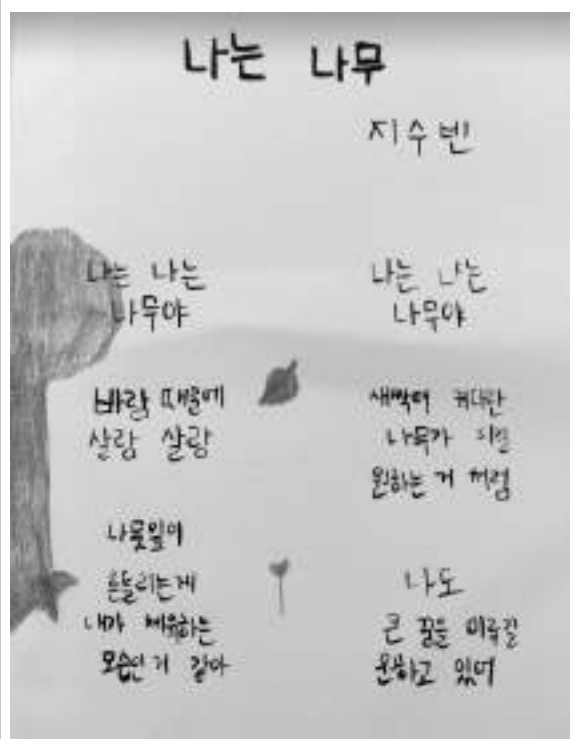 나는 나무
지수빈
나는 나는
나무야
바람 때문에
살랑 살랑
나뭇잎이
흔들리는게
내가 체육하는
모습인 거 같아
나는 나는
나무야
새싹이 커다란
나무가 되길
원하는 거 처럼
나도
큰 꿈을 이루길
원하고 있어